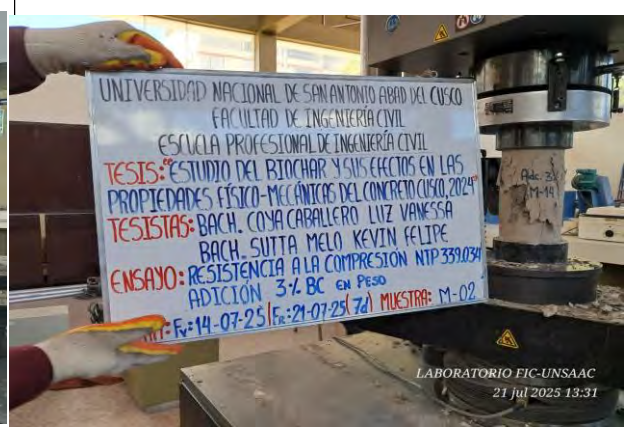 UNIVERSIDAD NACIONAL DE SAN ANTONIO ABAD DEL CUSCO
FACULTAD DE INGENIERÍA CIVIL
ESCUELA PROFESIONAL DE INGENIERÍA CIVIL
TESIS: "ESTUDIO DEL BIOCHAR Y SUS EFECTOS EN LAS
PROPIEDADES FÍSICO-MECÁNICAS DEL CONCRETO CUSCO, 2024"
TESISTAS: BACH. COYA CABALLERO LUZ VANESSA
BACH. SUTTA MELO KEVIN FELIPE
ENSAYO: RESISTENCIA A LA COMPRESIÓN NTP 339.034
ADICIÓN 3% BC EN PESO
Fv: 14-07-25 | FR: 21-07-25 (7d) MUESTRA: M-02
Adc. 3%
M-14
LABORATORIO FIC-UNSAAC
21 jul 2025 13:31